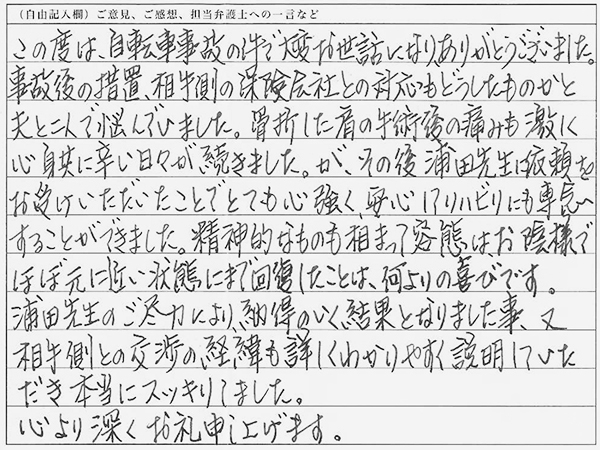 （自由記入欄）ご意見、ご感想、担当弁護士への一言など
この度は、自転車事故の件で大変お世話になりありがとうございました。
事故後の措置、相手側の保険会社との対応もどうしたものかと
夫と二人で悩んでいました。骨折した肩の手術後の痛みも激しく
心身共に辛い日々が続きました。が、その後浦田先生に依頼を
お受けいただいたことでとても心強く、安心してリハビリにも専念
することができました。精神的なものも相まって容態は、お陰様で
ほぼ元に近い状態にまで回復したことは、何よりの喜びです。
浦田先生のご尽力により、納得のいく結果となりました事、又
相手側との交渉の、経緯も詳しくわかりやすく説明していた
だき本当にスッキリしました。
心より深くお礼申し上げます。